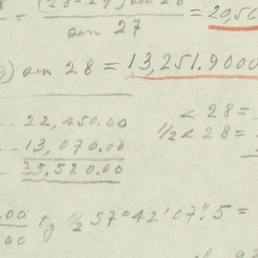 8 = (28-29) sin 28 / sin 27 = 20,50
) sin 28 = 13,251.9000
22,450.00
13,070.00
35,520.00
< 28 =
1/2 < 28 =
.00 / 00 tg 1/2 57°42'07".5 =